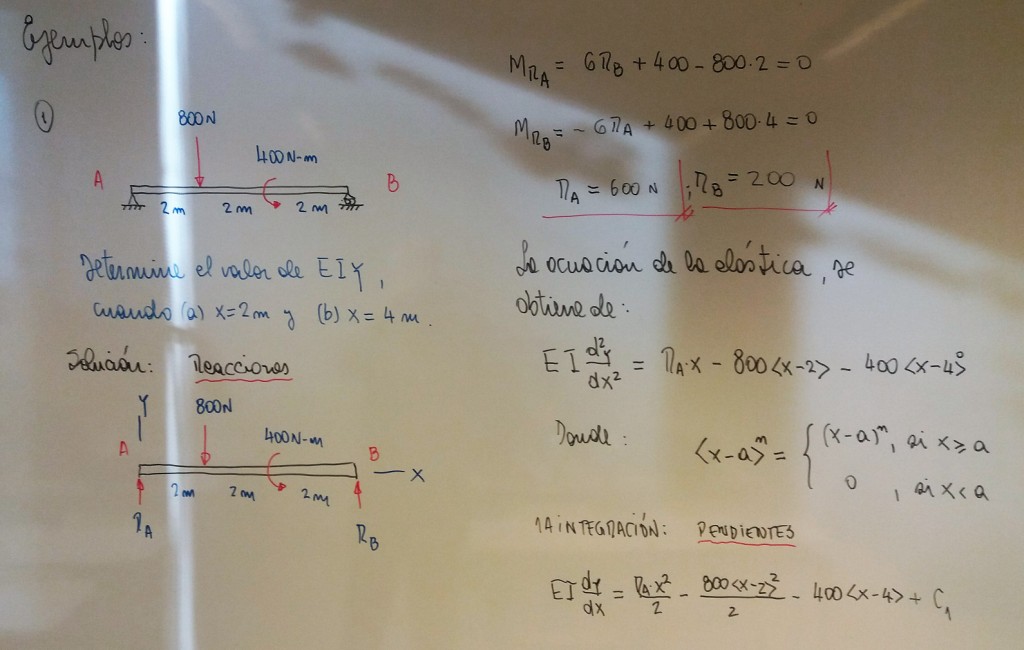 Ejemplos:
①
800N
400N-m
A
B
2m 2m 2m
Determine el valor de EIY,
cuando (a) x=2m y (b) x=4m.
Solución: Reacciones
Y
800N
400N-m
A
B
X
2m 2m 2m
R_A
R_B
M_{R_A} = 6R_B + 400 - 800·2 = 0
M_{R_B} = -6R_A + 400 + 800·4 = 0
R_A = 600 N ; R_B = 200 N
La ecuación de la elástica, se
obtiene de:
EI d²y/dx² = R_A·x - 800<x-2> - 400<x-4>⁰
Donde: <x-a>^m = { (x-a)^m, si x≥a
0, si x<a
1A INTEGRACIÓN: PENDIENTES
EI dy/dx = R_A·x²/2 - 800<x-2>²/2 - 400<x-4> + C₁